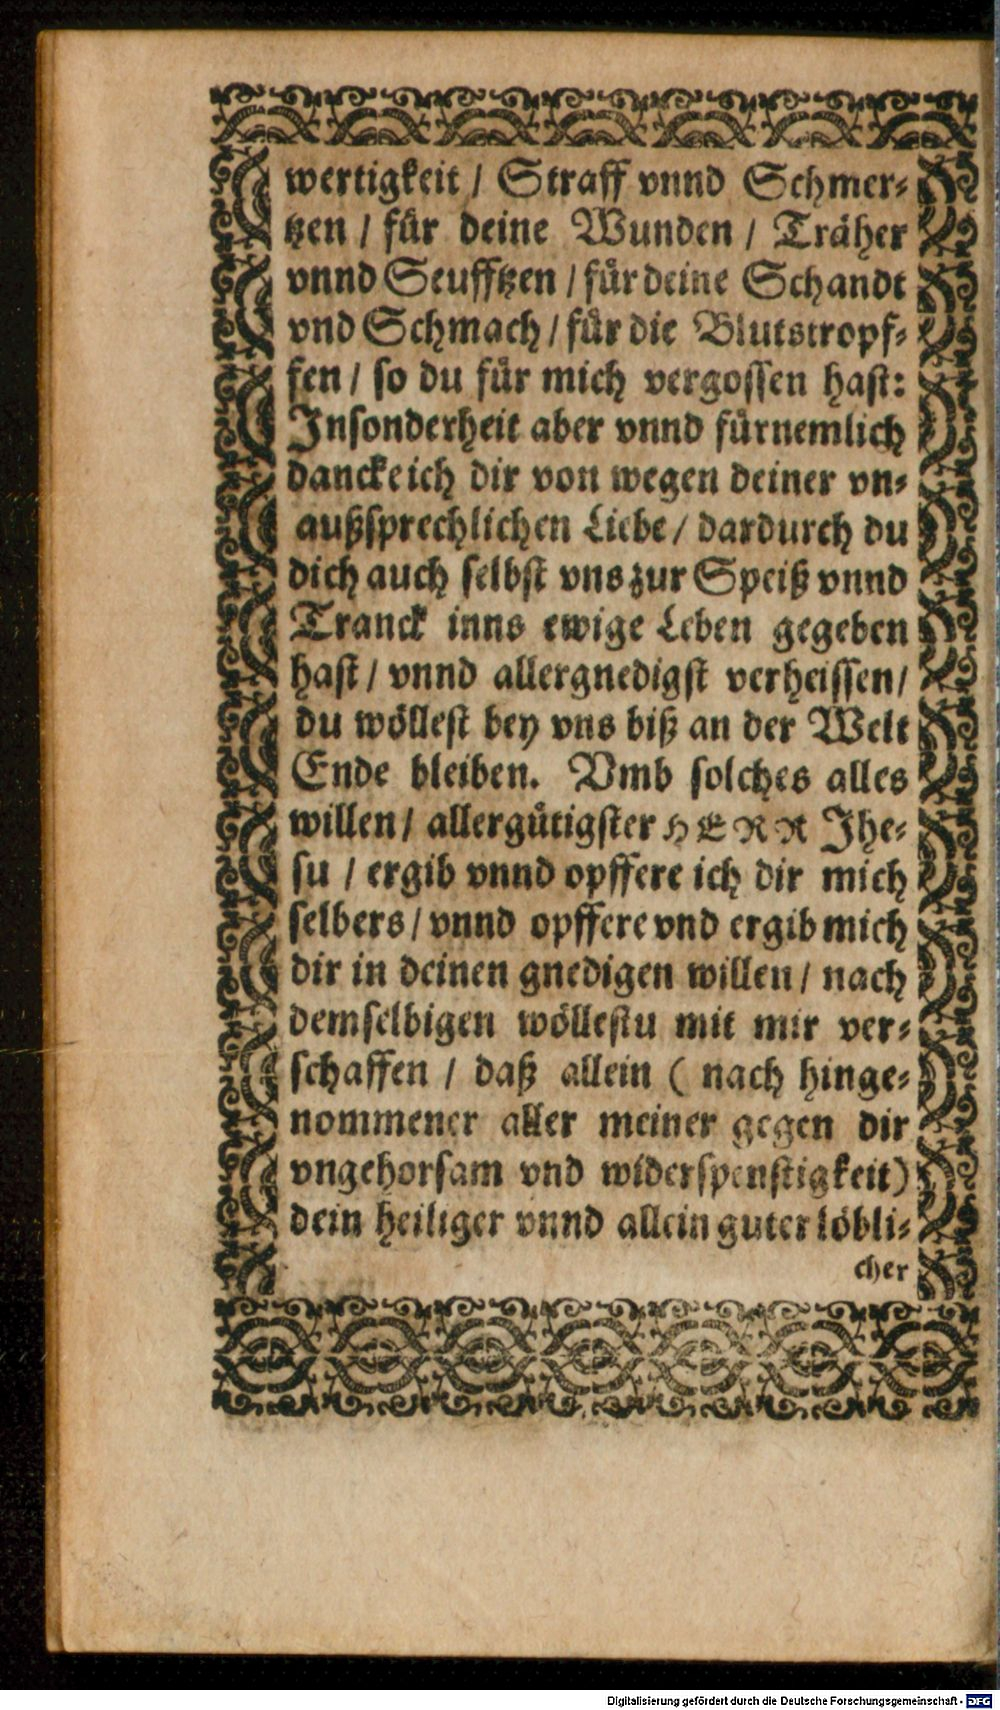 wertigkeit / Straff vnnd Schmer⸗
tzen / fuͤr deine Wunden / Traͤher
vnnd Seufftzen / fuͤr deine Schandt
vnd Schmach / fuͤr die Blutstropf⸗
fen / so du fuͤr mich vergossen hast:
Insonderheit aber vnnd fuͤrnemlich
dancke ich dir von wegen deiner vn⸗
außsprechlichen Liebe / dardurch du
dich auch selbst vns zur Speiß vnnd
Tranck inns ewige Leben gegeben
hast / vnnd allergnedigst verheissen /
du woͤllest bey vns biß an der Welt
Ende bleiben. Vmb solches alles
willen / allerguͤtigster HERR Jhe⸗
su / ergib vnnd opffere ich dir mich
selbers / vnnd opffere vnd ergib mich
dir in deinen gnedigen willen / nach
demselbigen woͤllestu mit mir ver⸗
schaffen / daß allein ( nach hinge⸗
nommener aller meiner gegen dir
vngehorsam vnd widerspenstigkeit)
dein heiliger vnnd allein guter loͤbli⸗
cher
Digitalisierung gefördert durch die Deutsche Forschungsgemeinschaft - DFG